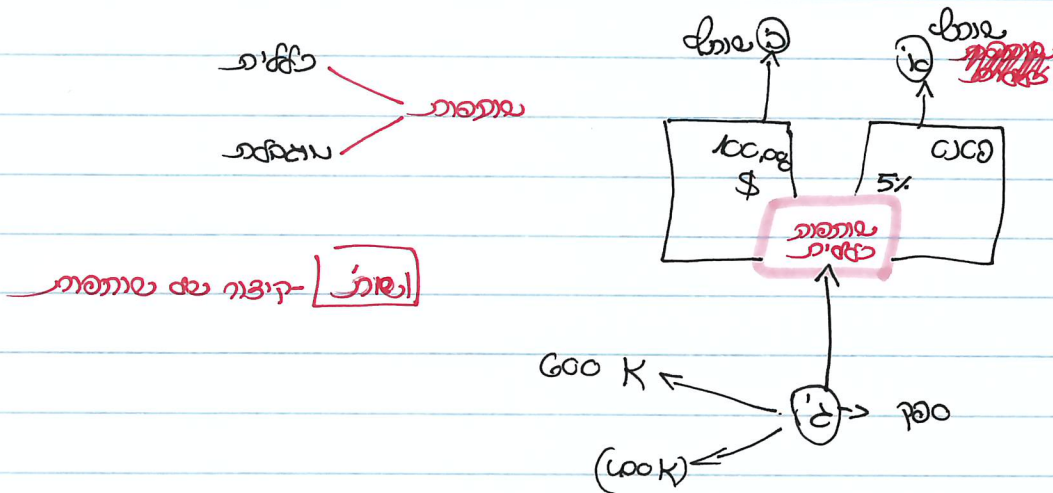 כללית
שותפות
מוגבלת
ושות' - קיצור של שותפות
שותף ב
שותף
א'
100,000
$
נכס
5%
שותפות
כללית
600 K
ג'
ספק
(600K)